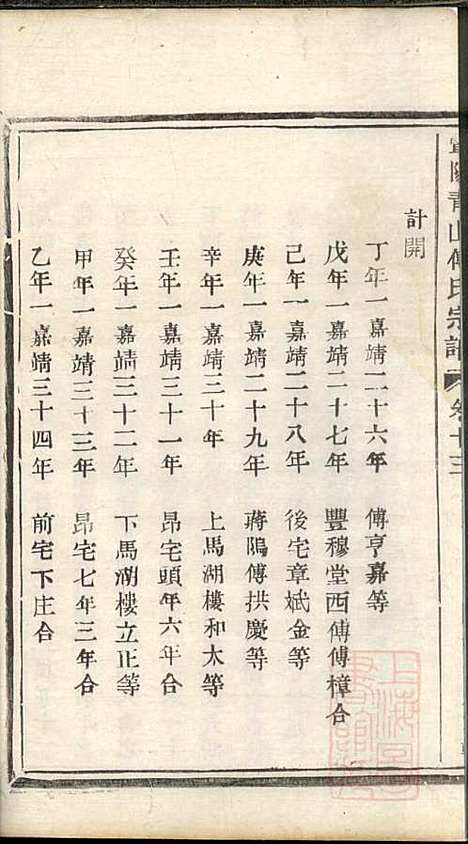 青山傅氏宗譜 卷十三
計開
丁年一嘉靖二十六年 傅亨嘉等
戊年一嘉靖二十七年 豐穆堂西傅傅樟合
己年一嘉靖二十八年 後宅章斌金等
庚年一嘉靖二十九年 蔣隖傅拱慶等
辛年一嘉靖三十年 上馬湖樓和太等
壬年一嘉靖三十一年 昂宅頭年六年合
癸年一嘉靖三十二年 下馬湖樓立正等
甲年一嘉靖三十三年 昂宅七年三年合
乙年一嘉靖三十四年 前宅下庄合